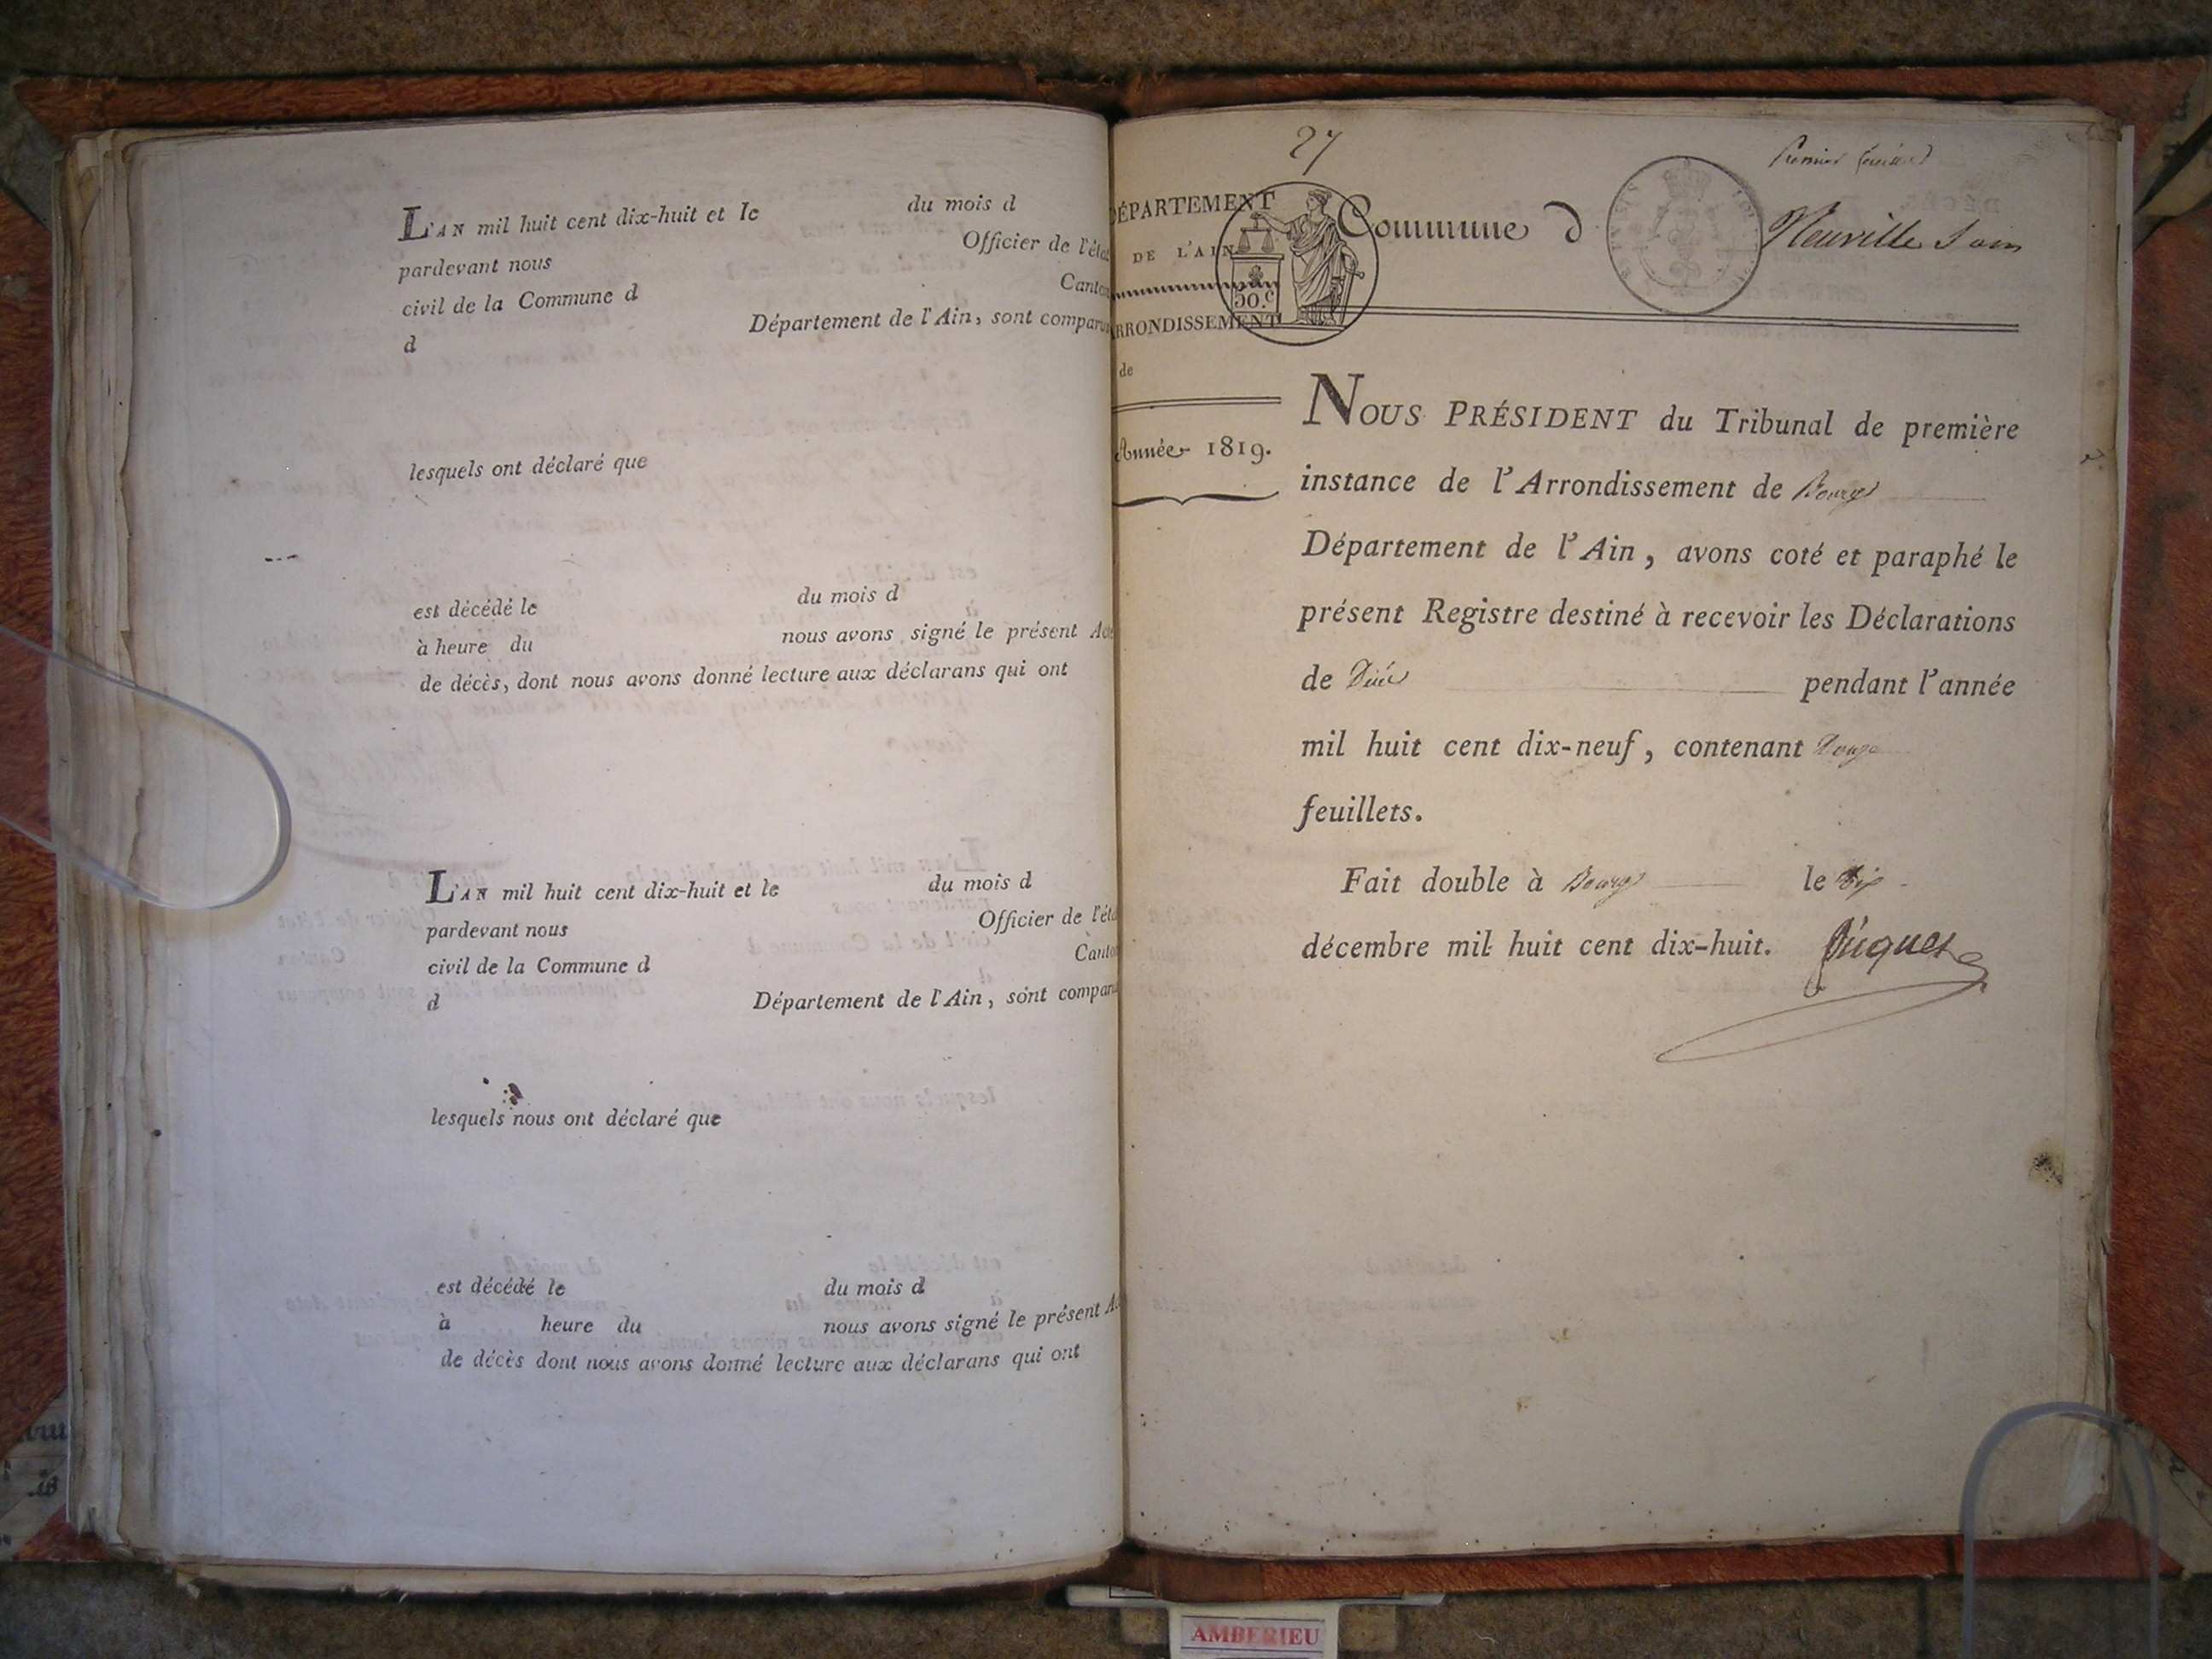 L'AN mil huit cent dix-huit et le du mois d
pardevant nous Officier de l'état
civil de la Commune d Canton
d Département de l'Ain, sont comparus
lesquels ont déclaré que
est décédé le du mois d
à heure du nous avons signé le présent Acte
de décès, dont nous avons donné lecture aux déclarans qui ont
L'AN mil huit cent dix-huit et le du mois d
pardevant nous Officier de l'éta
civil de la Commune d Canton
d Département de l'Ain, sont compar
lesquels nous ont déclaré que
est décédé le du mois d
à heure du nous avons signé le présent A
de décès dont nous avons donné lecture aux déclarans qui ont
27
Premier
DÉPARTEMENT
DE L'AIN
50.c
ARRONDISSEMENT
de
Année 1819.
Commune d Neuville s ain
NOUS PRÉSIDENT du Tribunal de première
instance de l'Arrondissement de Bourg
Département de l'Ain, avons coté et paraphé le
présent Registre destiné à recevoir les Déclarations
de Décès pendant l'année
mil huit cent dix-neuf, contenant Douze
feuillets.
Fait double à Bourg le dix
décembre mil huit cent dix-huit.
AMBERIEU